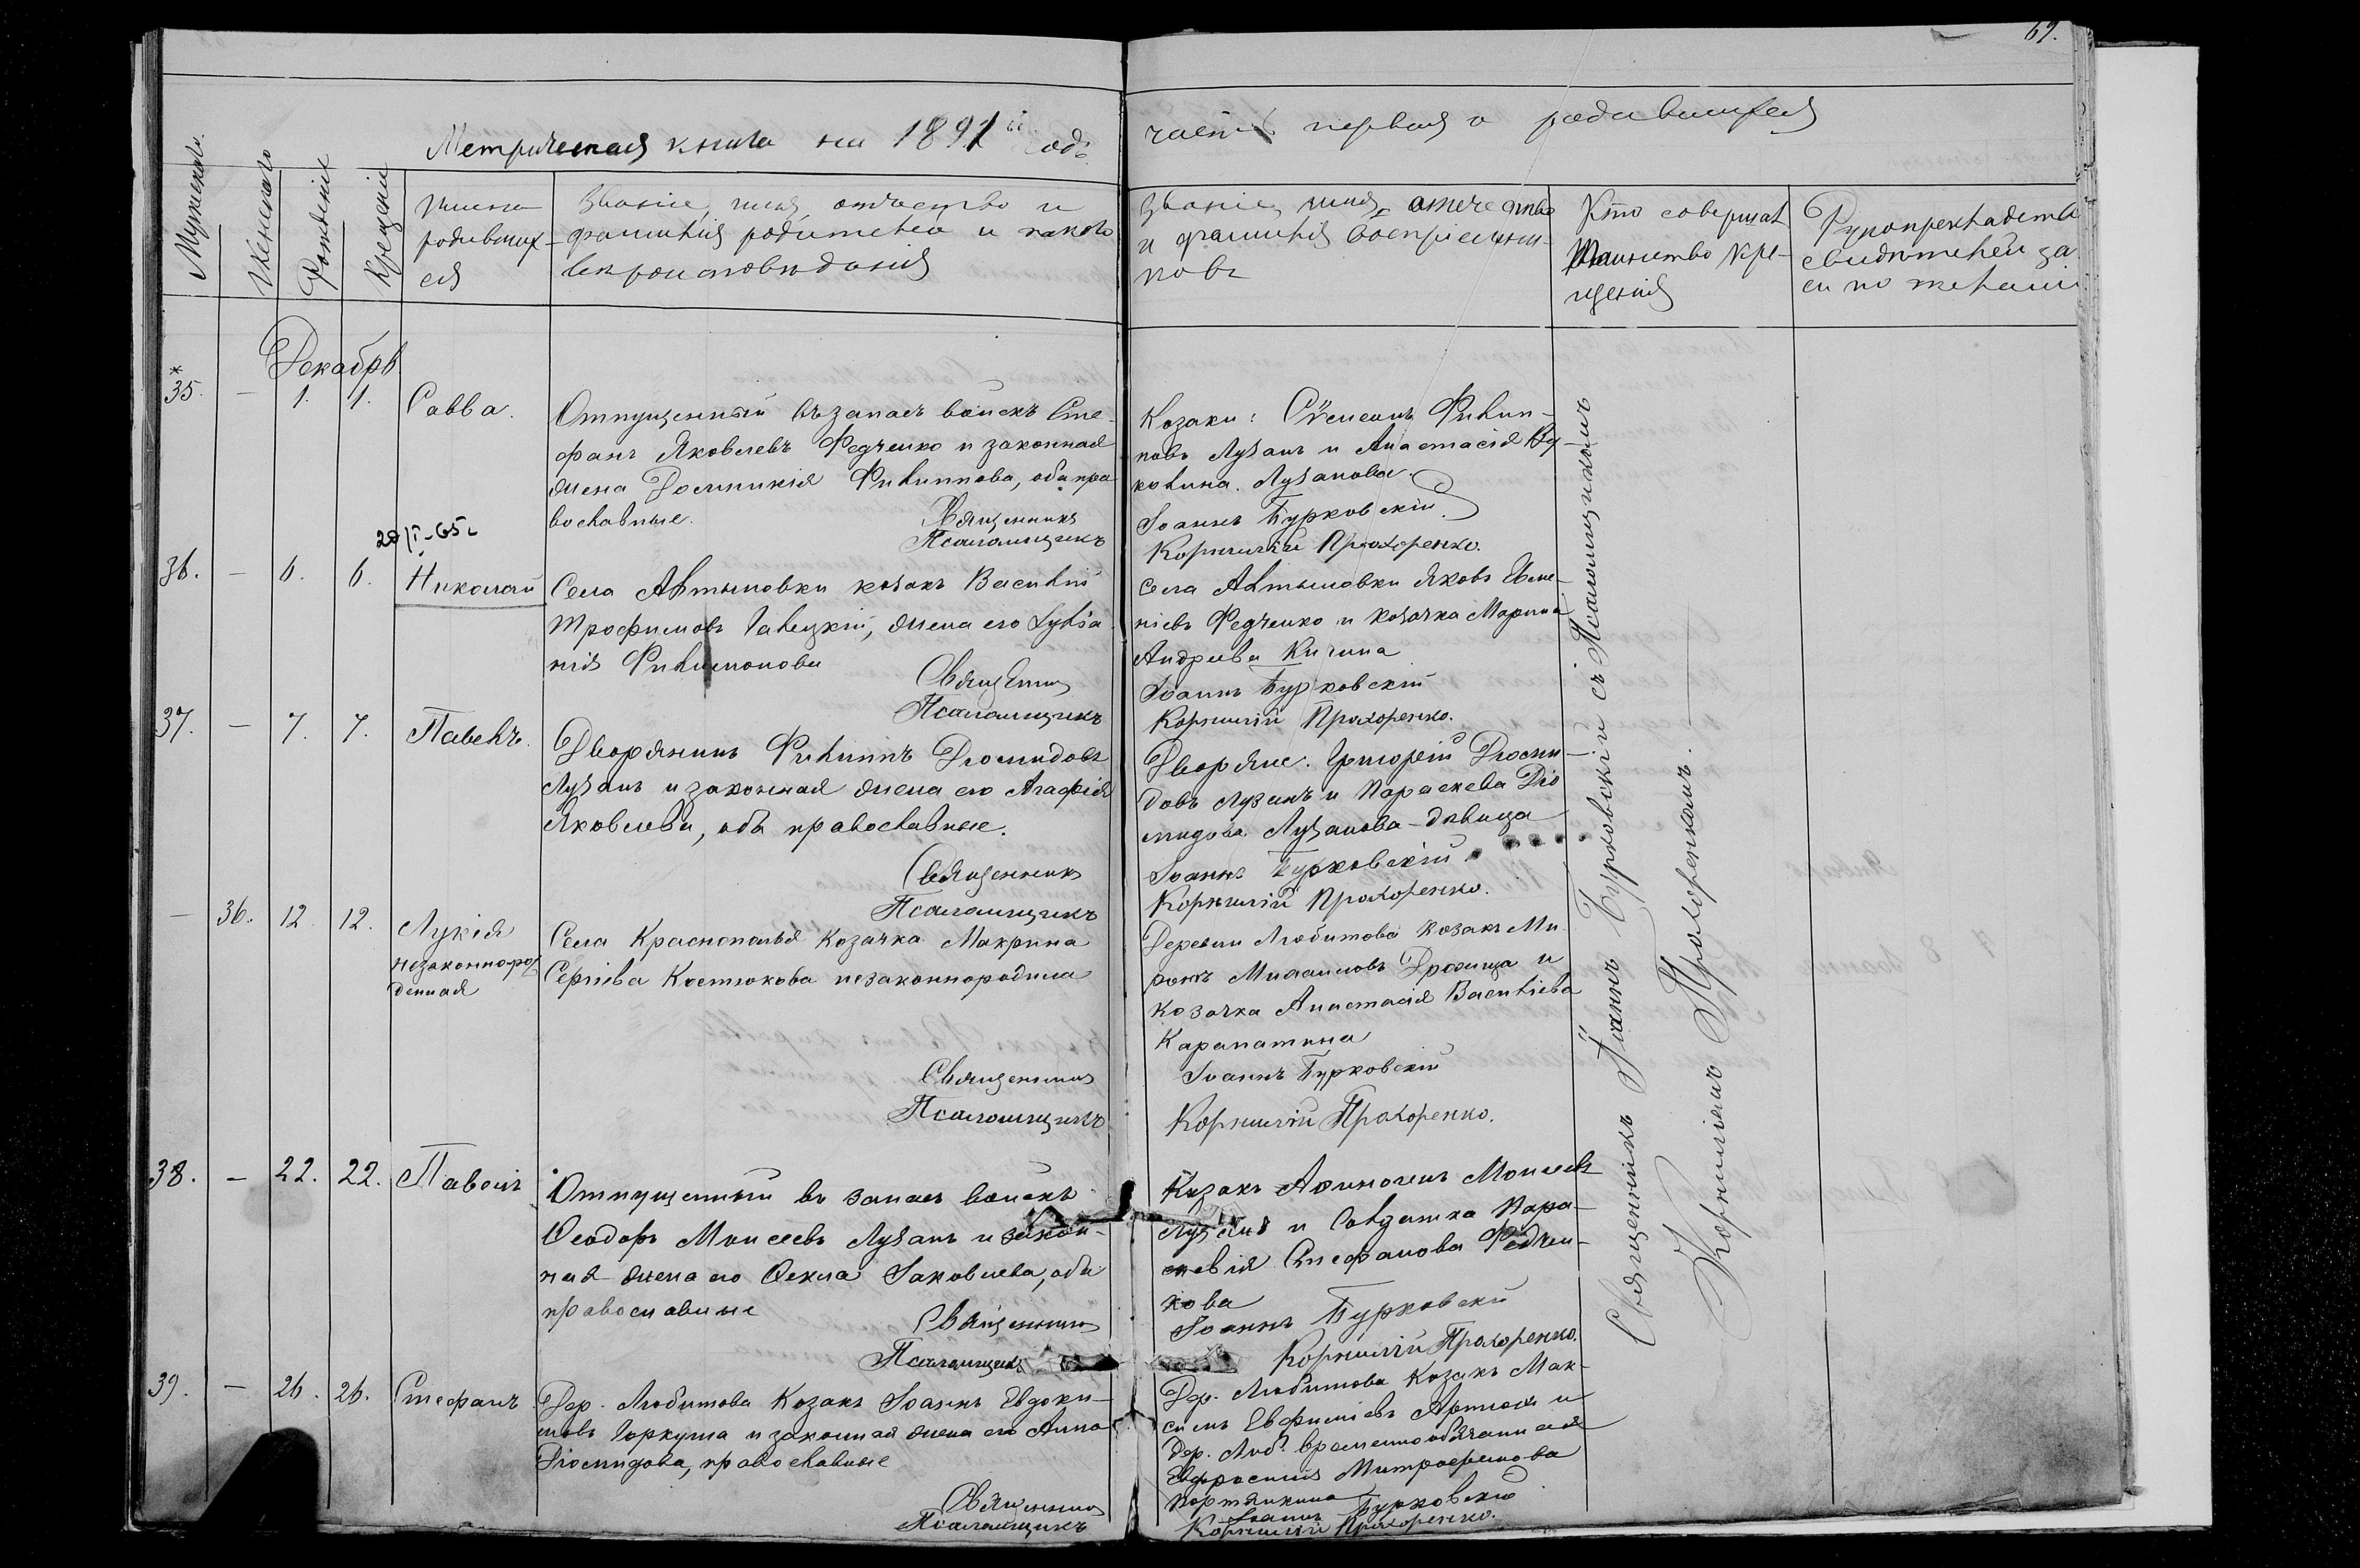 69.
Метрическая книга на 1891й годъ
часть первая о родившихся
Мужескаго
Женскаго
Рожденія
Крещенія
Имена
родивших-
ся
Званіе, имя, отчество и
фамилія родителей и какого
вѣроисповѣданія
Званіе, имя, отчество
и фамилія воспріемни-
ковъ
Кто совершалъ
таинство кре-
щенія
Рукоприкладств
свидѣтелей за
си по желані
Декабрь
*
35. — 1. 1. Савва.
Отпущенный въ запасъ войскъ Сте-
фанъ Яковлевъ Федченко и законная
жена Домникія Филиппова, оба пра
вославные.
Священникъ
Псаломщикъ
Козаки: Сѵмеонъ Филип-
повъ Лузанъ и Анастасія
Лузанова.
Іоаннъ Бурковскій
Корнилій Прохоренко.
28/I-65 г
36. — 6. 6. Николай
Села Алтыновки козакъ Василій
Трофимовъ Галецкій, жена его
нія Филимонова
Священник
Псаломщикъ
Села Алтыновки Яковъ Евме-
ніевъ Федченко и козачка Марина
Андреева Кичина
Іоаннъ Бурковскій
Корнилій Прохоренко.
37. — 7. 7. Павелъ.
Дворянинъ Филиппъ Діомидовъ
Лузанъ и законная жена его Агафія
Яковлева, оба православные.
Священникъ
Псаломщикъ
Дворяне. Григорій Діоми-
довъ Лузанъ и Параскева Діо
мидова Лузанова-дѣвица
Іоаннъ Бурковскій
Корнилій Прохоренко.
— 36. 12. 12. Лукія
незаконнорож
денная
Села Краснополья Козачка Макрина
Сергіева Костюкова незаконнородила
Священникъ
Псаломщикъ
Деревни Любитова Козакъ Ми
ронъ Михаиловъ Дрозица и
козачка Анастасія Василіева
Карапатина
Іоаннъ Бурковскій
Корнилій Прохоренко.
38. — 22. 22. Павелъ
Отпущенный въ запасъ войскъ
Ѳеодоръ Моисеевъ Лузанъ и закон-
ная жена его Ѳекла Іаковлева, оба
православные
Священникъ
Псаломщикъ
Козакъ Моисеевъ
Лузанъ и Солдатка Пара-
скевія Стефанова Федчен-
кова
Іоаннъ Бурковскій
Корнилій Прохоренко.
39. — 26. 26. Стефанъ
Дер. Любитова Козакъ Іоаннъ Евдоки-
мовъ Горкуша и законная жена его Анна
Діомидова, православные
Священник
Псаломщикъ
Дер. Любитова Козакъ Мак-
симъ Евфиміевъ Артюхъ и
Дер. Люб. временнообязанная
Евфросинія Митрофанова
Іоаннъ Бурковскій
Корнилій Прохоренко.
Священникъ Іоаннъ Бурковскій съ Псаломщикомъ
Корниліемъ Прохоренкомъ. —